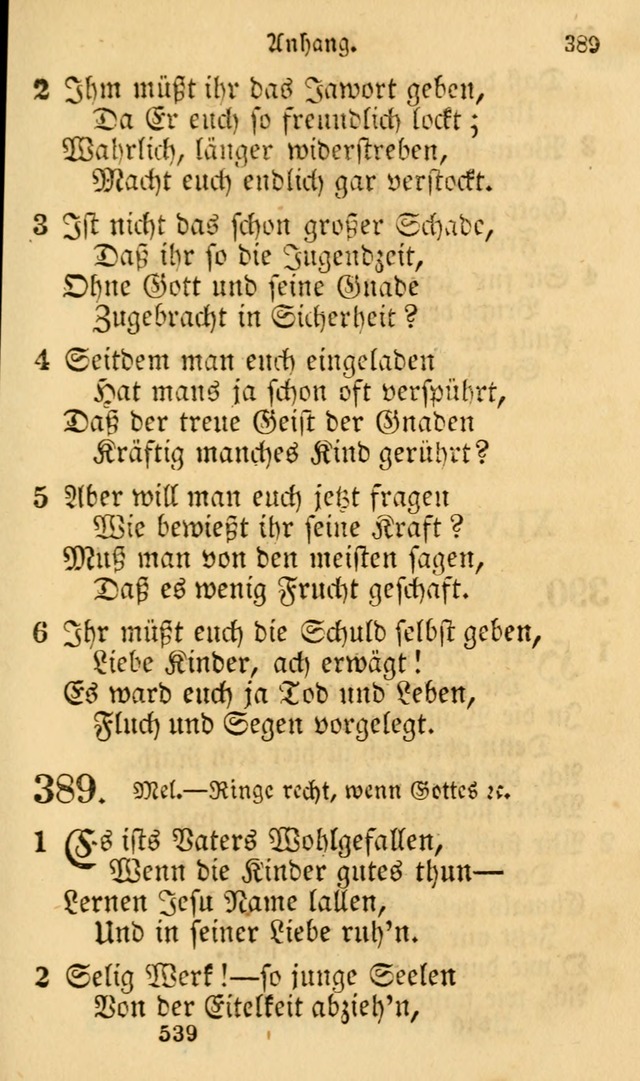 Anhang. 389
2 Ihm müßt ihr das Jawort geben,
Da Er euch so freundlich lockt;
Wahrlich, länger widerstreben,
Macht euch endlich gar verstockt.
3 Ist nicht das schon großer Schade,
Daß ihr so die Jugendzeit,
Ohne Gott und seine Gnade
Zugebracht in Sicherheit?
4 Seitdem man euch eingeladen
Hat mans ja schon oft verspührt,
Daß der treue Geist der Gnaden
Kräftig manches Kind gerührt?
5 Aber will man euch jetzt fragen
Wie bewießt ihr seine Kraft?
Muß man von den meisten sagen,
Daß es wenig Frucht geschaft.
6 Ihr müßt euch die Schuld selbst geben,
Liebe Kinder, ach erwägt!
Es ward euch ja Tod und Leben,
Fluch und Segen vorgelegt.
389. Mel.—Ringe recht, wenn Gottes ꝛc.
1 Es ists Vaters Wohlgefallen,
Wenn die Kinder gutes thun—
Lernen Jesu Name lallen,
Und in seiner Liebe ruh'n.
2 Selig Werk!—so junge Seelen
Von der Eitelkeit abzieh'n,
539